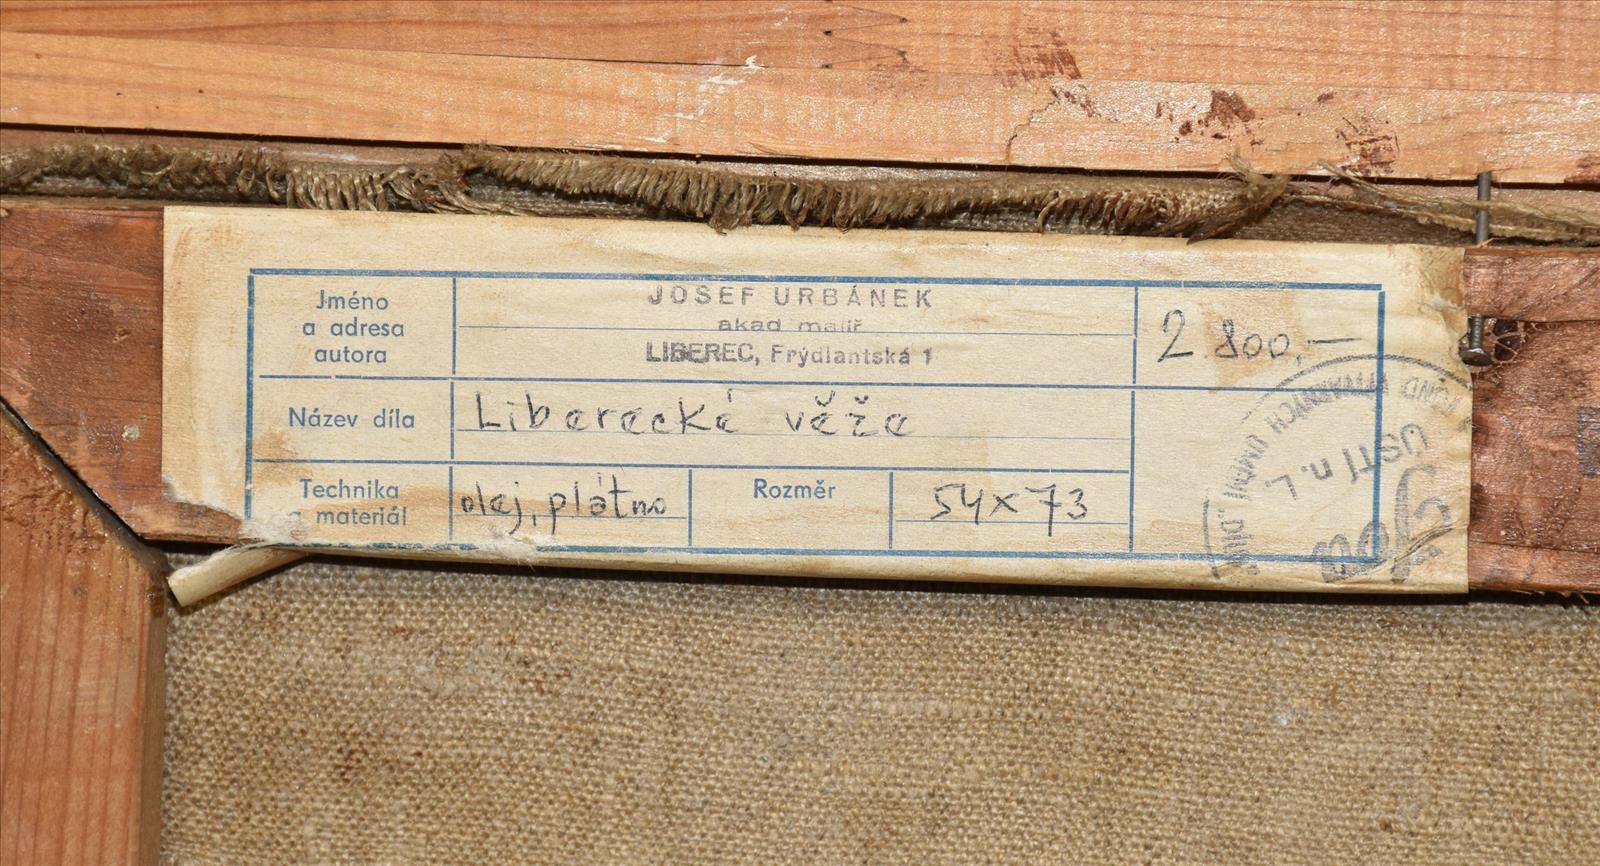 Jméno
a adresa
autora
JOSEF URBÁNEK
akad malíř
LIBEREC, Frýdlantská 1
2 800,—
Název díla
Liberecké věže
Technika
a materiál
olej, plátno
Rozměr
54x73
FOND VÝTVARNÝCH UMĚNÍ „DÍLO"
ÚSTÍ n. L.